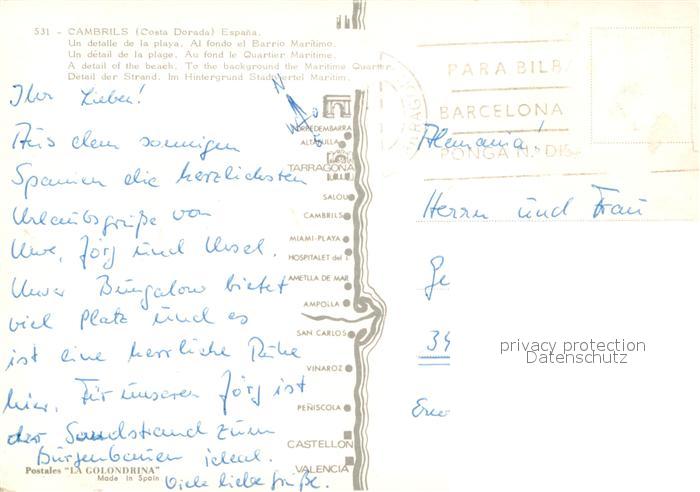 531 - CAMBRILS (Costa Dorada) España.
Un detalle de la playa. Al fondo el Barrio Marítimo.
Un détail de la plage. Au fond le Quartier Maritime.
A detail of the beach. To the background the Maritime Quarter.
Detail der Strand. Im Hintergrund Stadtviertel Maritim.
Ihr Lieben!
Aus dem sonnigen
Spanien die herzlichsten
Urlaubsgrüße von
Uwe, Jörg und Ursel.
Unser Bungalow bietet
viel Platz und es
ist eine herrliche Ruhe
hier. Für unseren Jörg ist
der Sandstrand zum
Burgenbauen ideal.
Viele liebe Grüße.
Postales "LA GOLONDRINA"
Made in Spain
N
TORREDEMBARRA
ALTAFULLA
TARRAGONA
SALOU
CAMBRILS
MIAMI-PLAYA
HOSPITALET del I.
AMETLLA DE MAR
AMPOLLA
SAN CARLOS
VINAROZ
PEÑISCOLA
CASTELLON
VALENCIA
PARA BILB
BARCELONA
PONGA N.º DIS
Alemania!
Herrn und Frau
Ge
34
privacy protection
Datenschutz